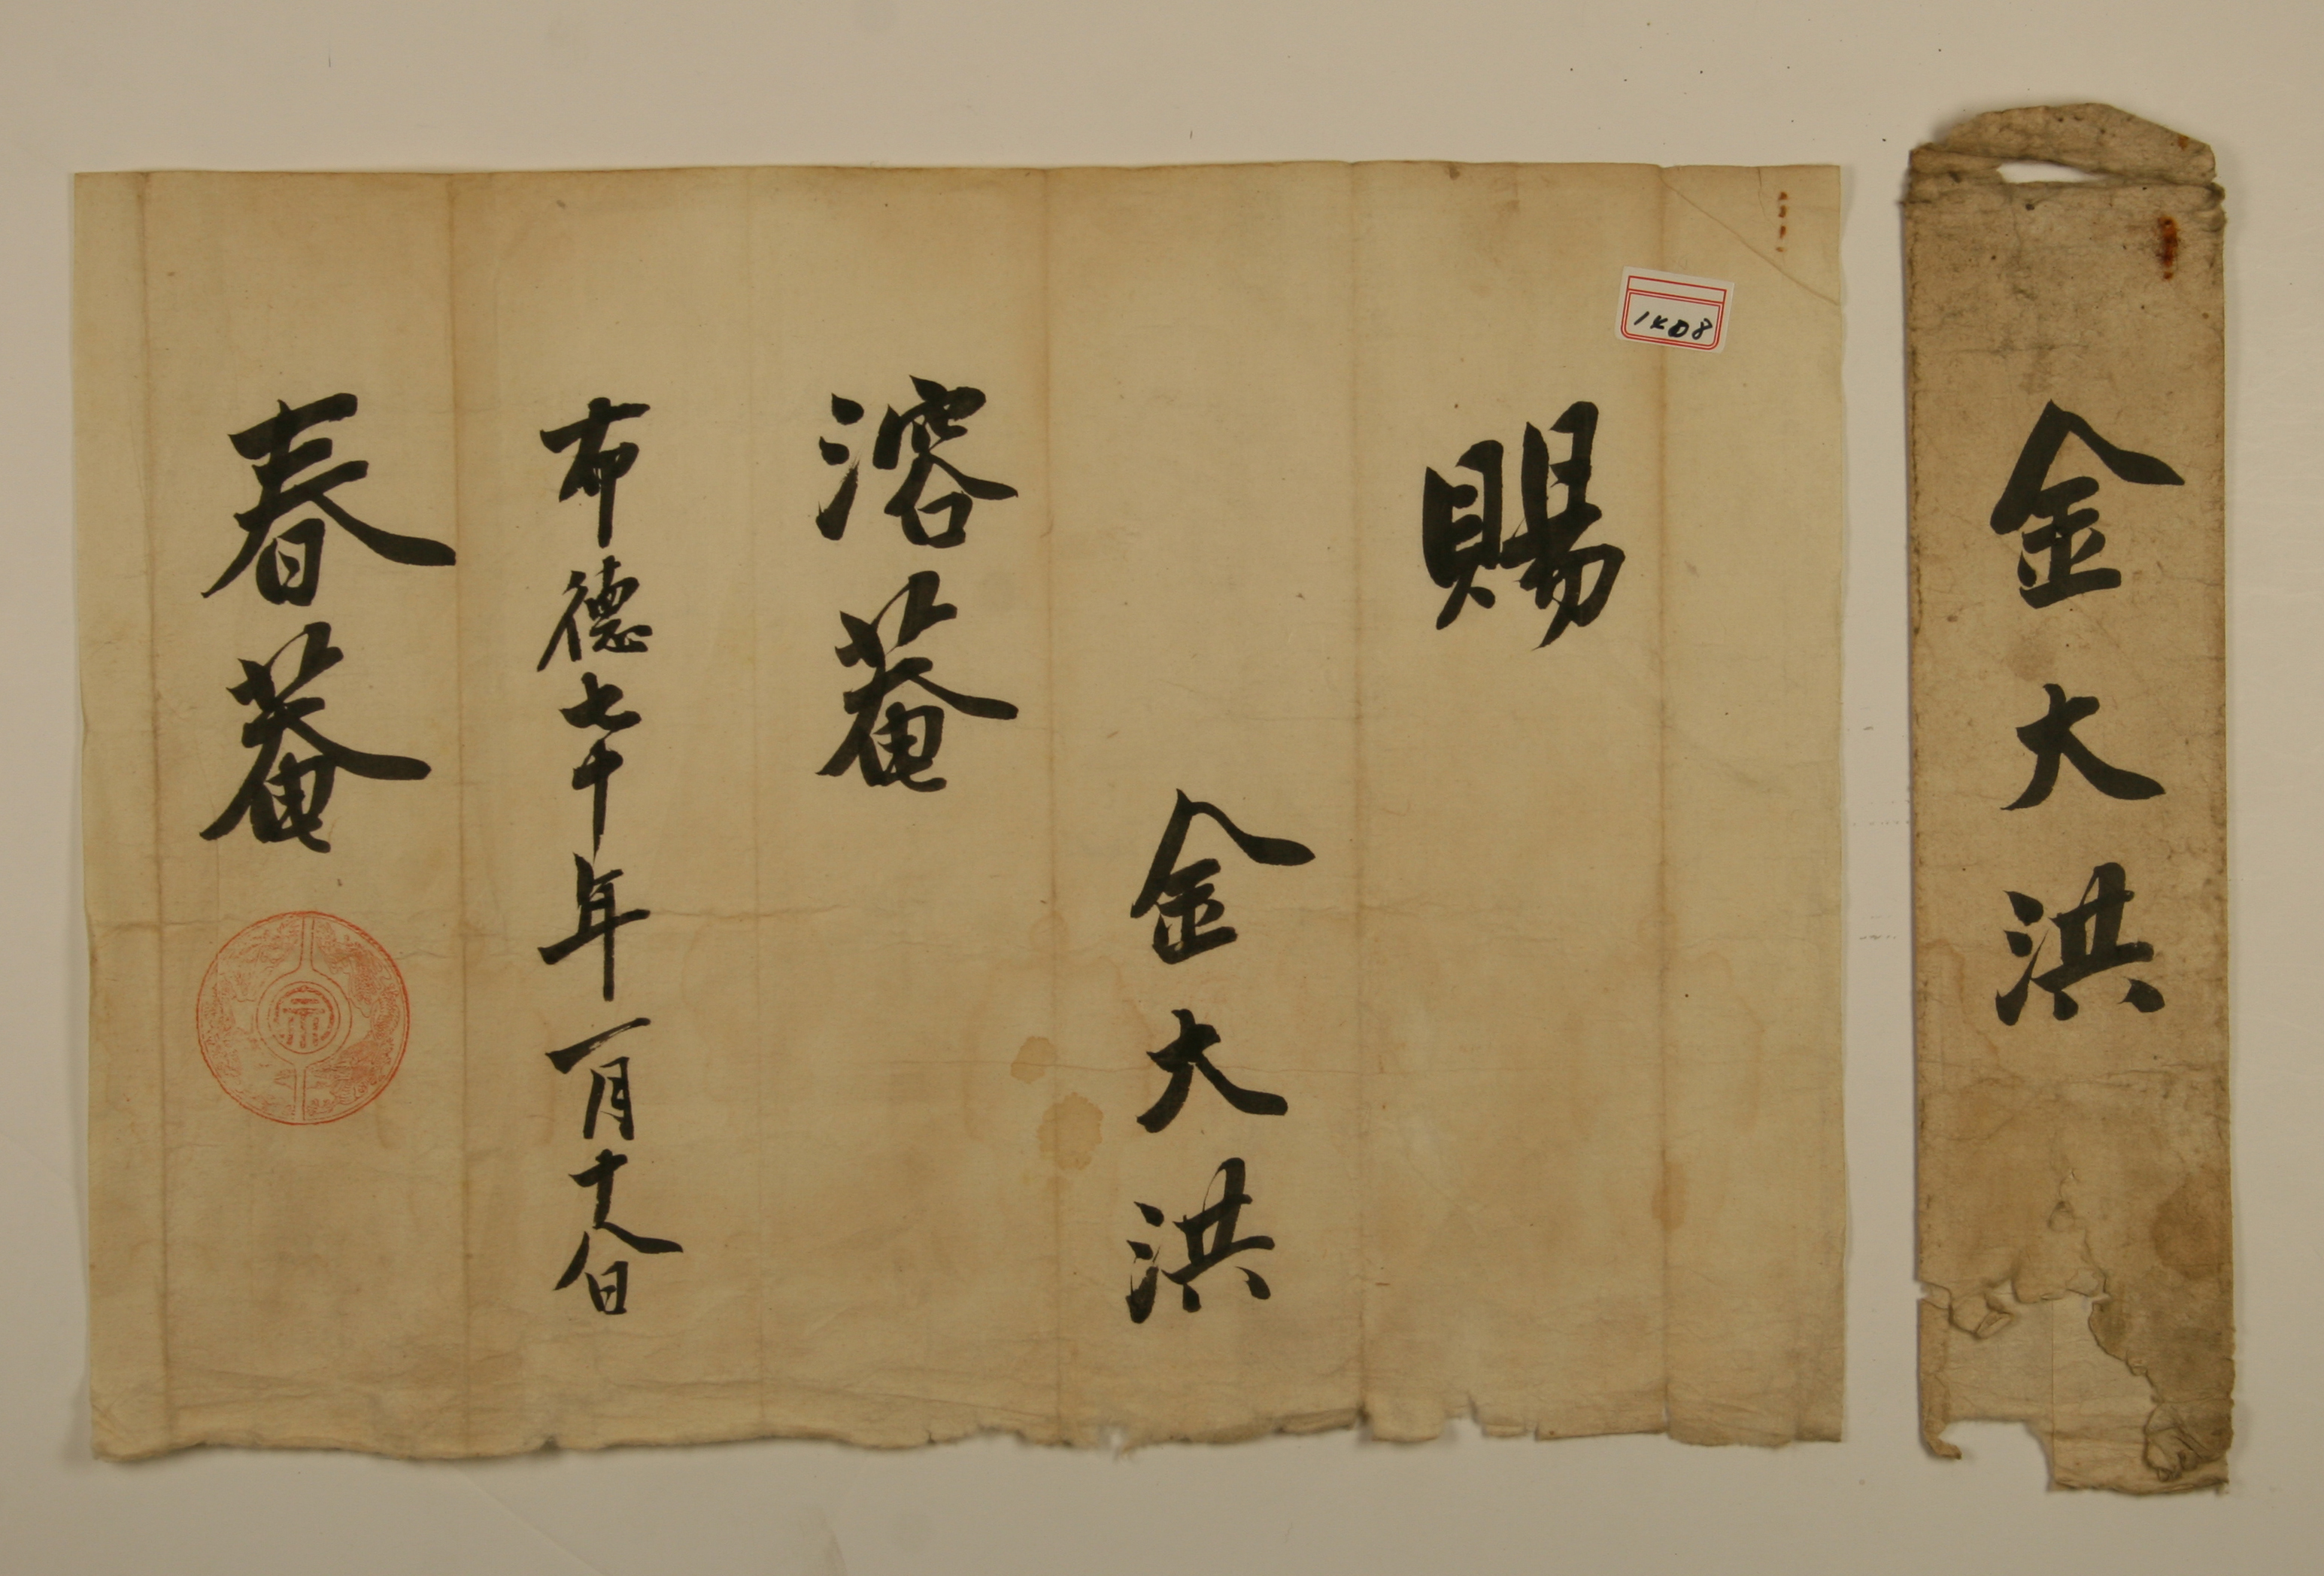 金大洪
賜
金大洪
溶菴
布德七十年一月十八日
春菴
1KD8